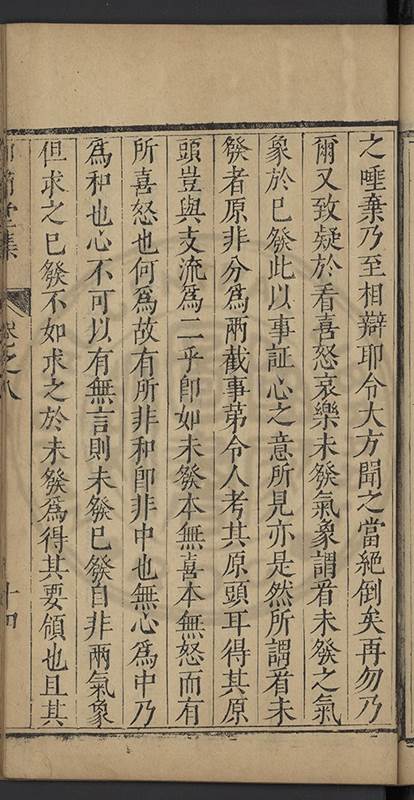 之唾棄乃至相辯耶令大方聞之當絕倒矣再勿乃
爾又致疑於看喜怒哀樂未發氣象謂看未發之氣
象於已發此以事証心之意所見亦是然所謂看未
發者原非分為兩截事第令人考其原頭耳得其原
頭豈與支流為二乎卽如未發本無喜本無怒而有
所喜怒也何為故有所非和卽非中也無心為中乃
為和也心不可以有無言則未發已發自非兩氣象
但求之已發不如求之於未發為得其要領也且其
堂集
卷之八
十四